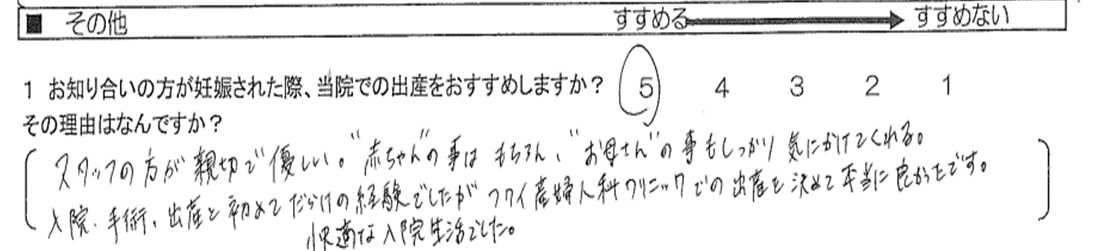 ■ その他 すすめる すすめない
1 お知り合いの方が妊娠された際、当院での出産をおすすめしますか? 5 4 3 2 1
その理由はなんですか?
(スタッフの方が親切で優しい。"赤ちゃん"の事はもちろん、"お母さん"の事もしっかり気にかけてくれる。
入院、手術、出産と初めてだらけの経験でしたがフクイ産婦人科クリニックでの出産を決めて本当に良かったです。
快適な入院生活でした。)